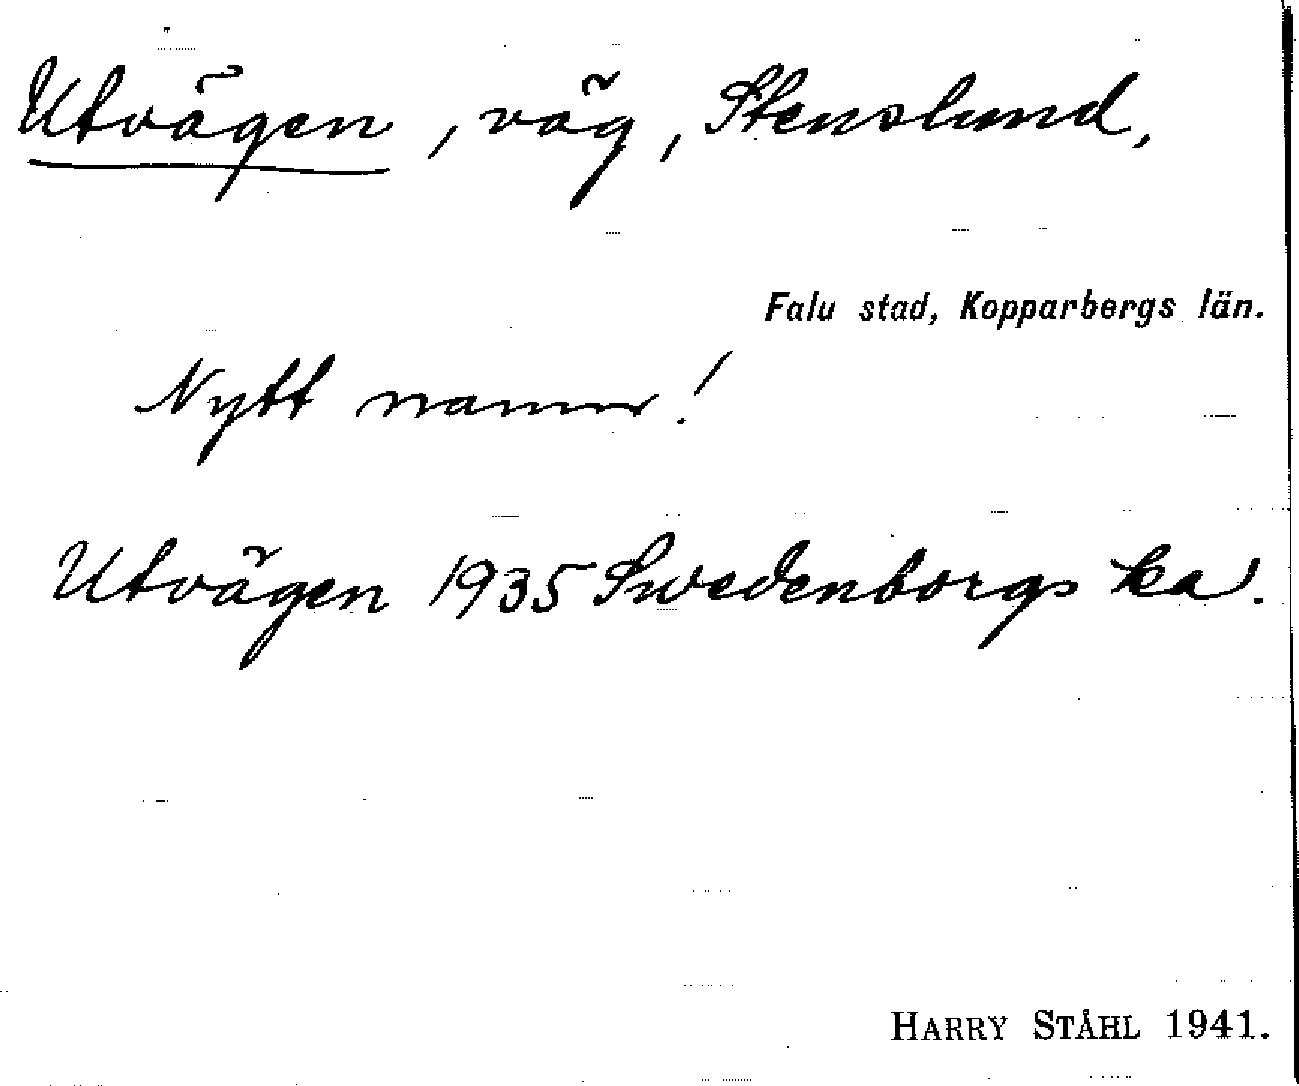 Utvägen, väg, Stenslund,
Falu stad, Kopparbergs län.
Nytt namn!
Utvägen 1935 Swedenborgs ka.
HARRY STÅHL 1941.